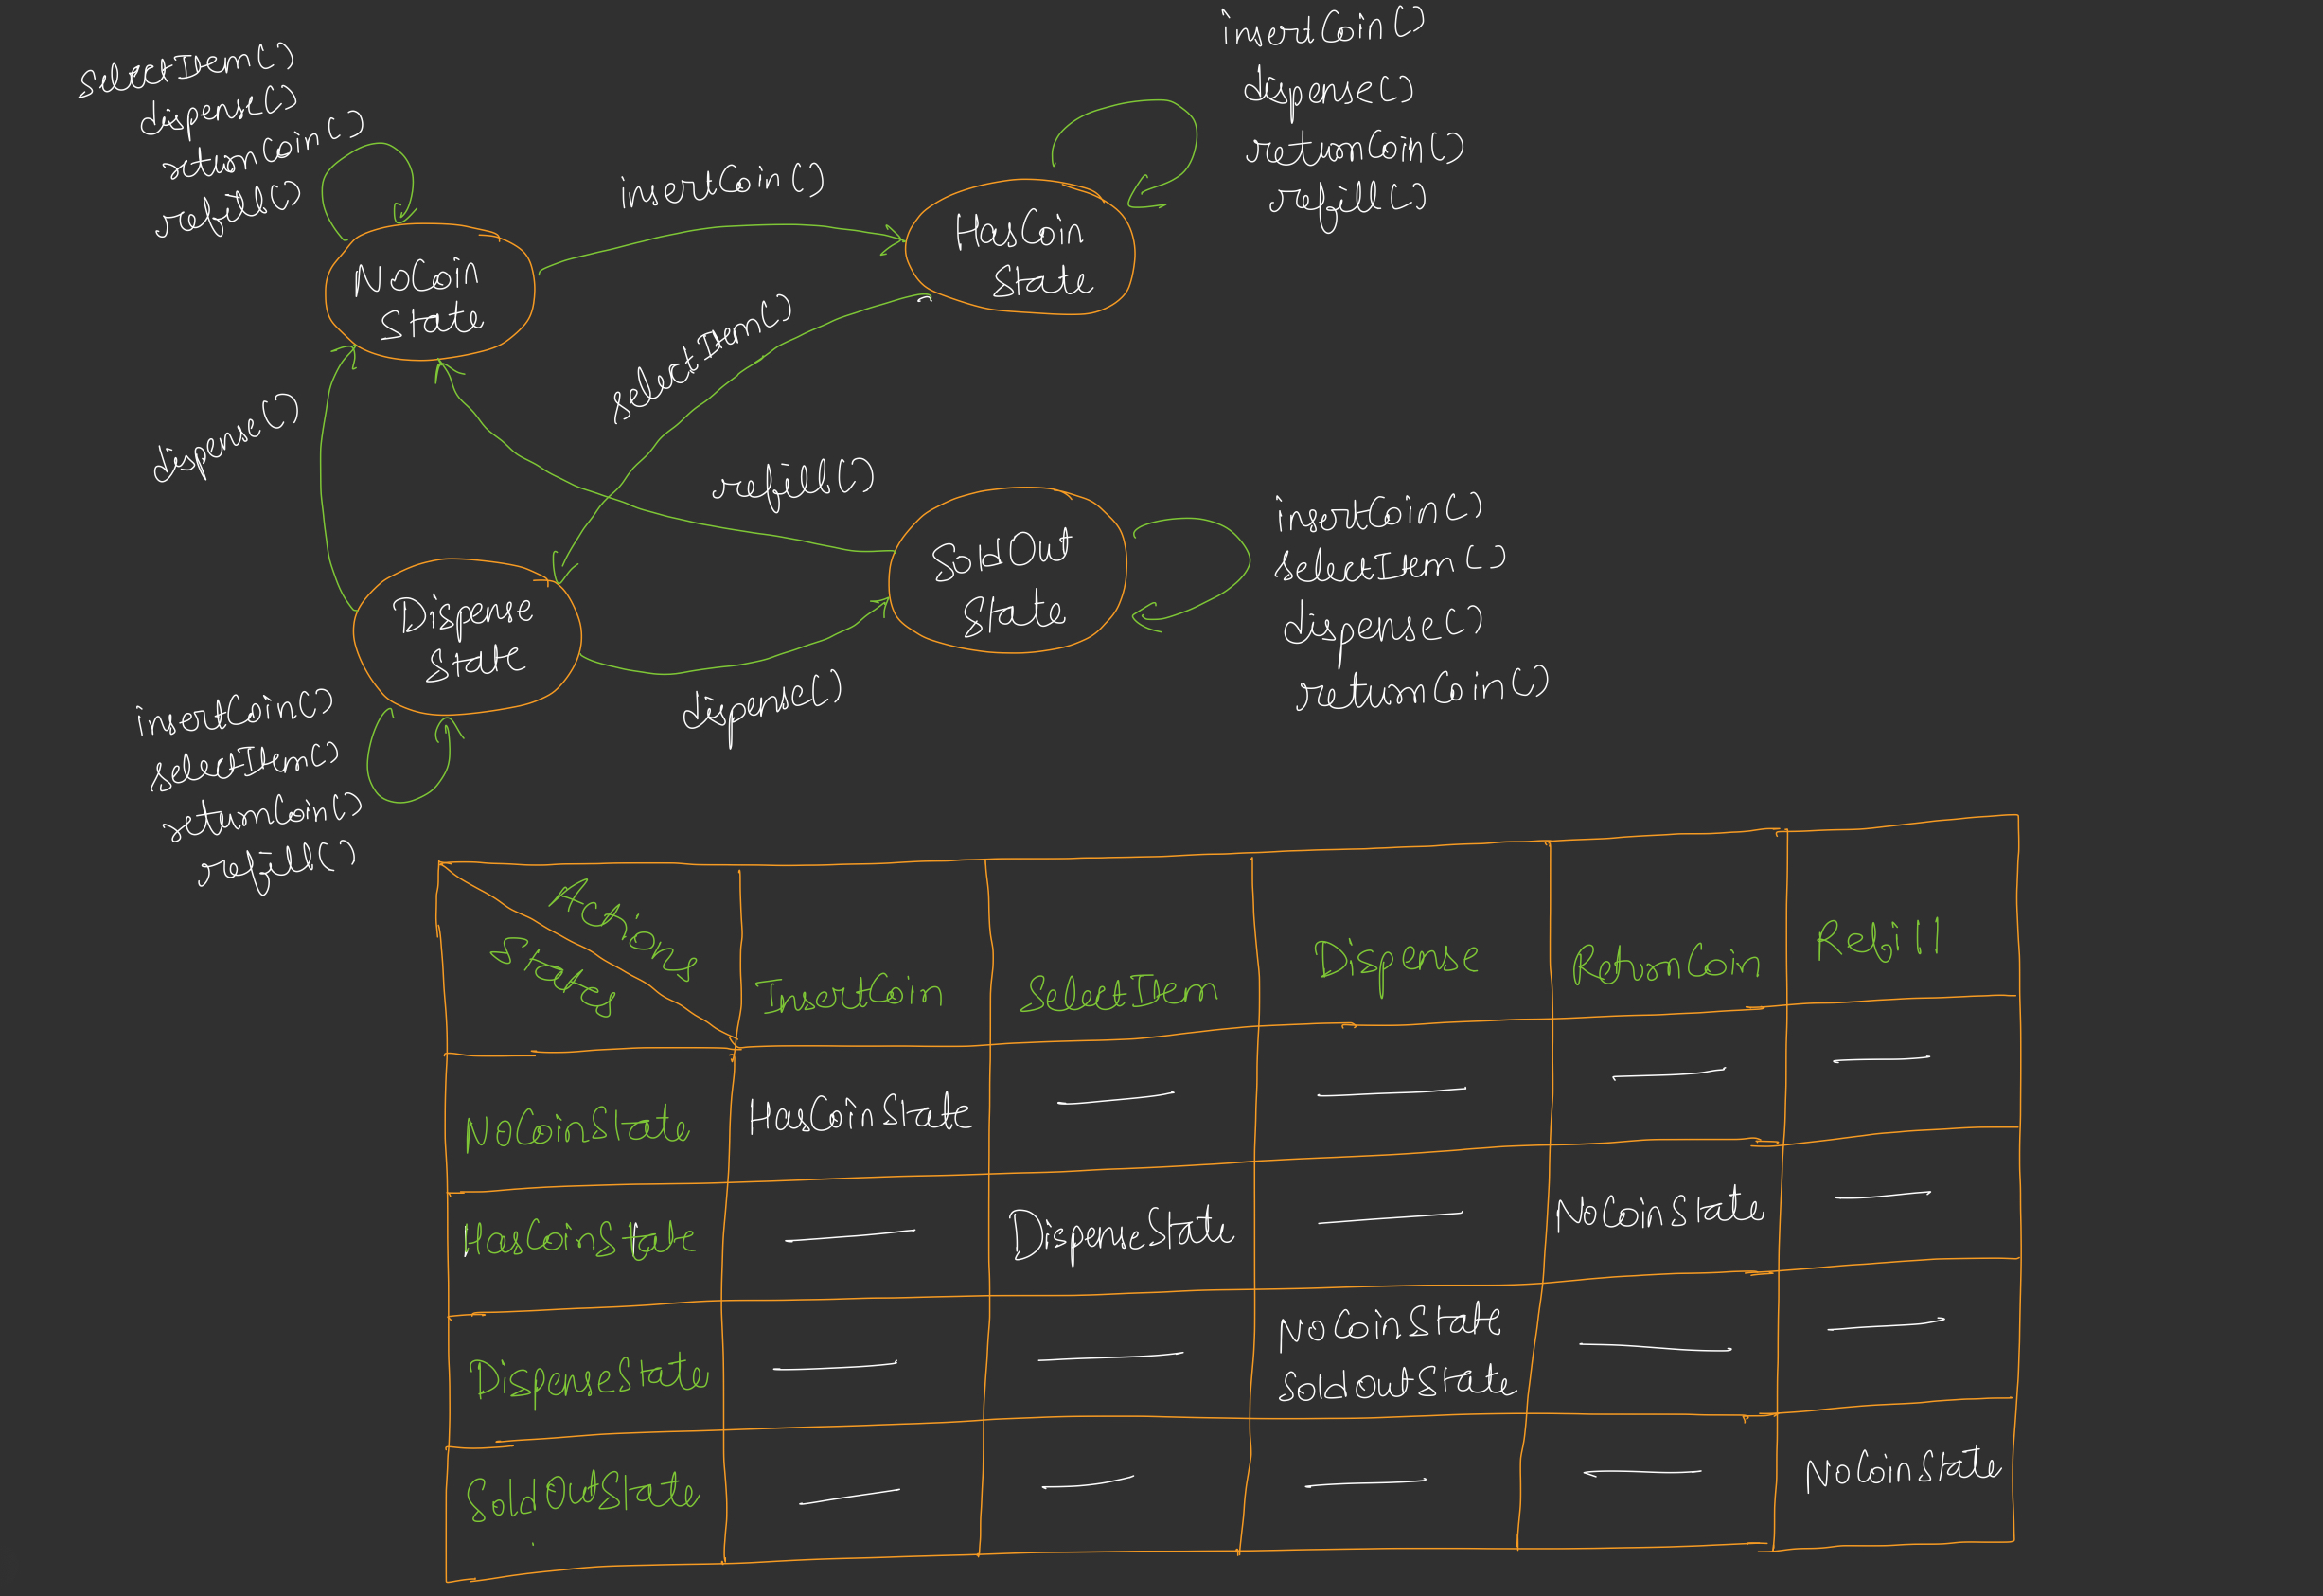 selectItem()
dispense()
returnCoin()
refill()
insertCoin()
insertCoin()
dispense()
returnCoin()
refill()
NoCoin
State
HasCoin
State
selectItem()
dispense()
refill()
SoldOut
State
insertCoin()
selectItem()
dispense()
returnCoin()
Dispense
State
dispense()
insertCoin()
selectItem()
returnCoin()
refill()
Actions
States
InsertCoin
SelectItem
Dispense
ReturnCoin
Refill
NoCoinState
HasCoinState
—
—
—
—
HasCoinState
—
DispenseState
—
NoCoinState
—
DispenseState
—
—
NoCoinState
SoldOutState
—
—
SoldOutState
—
—
—
—
NoCoinState